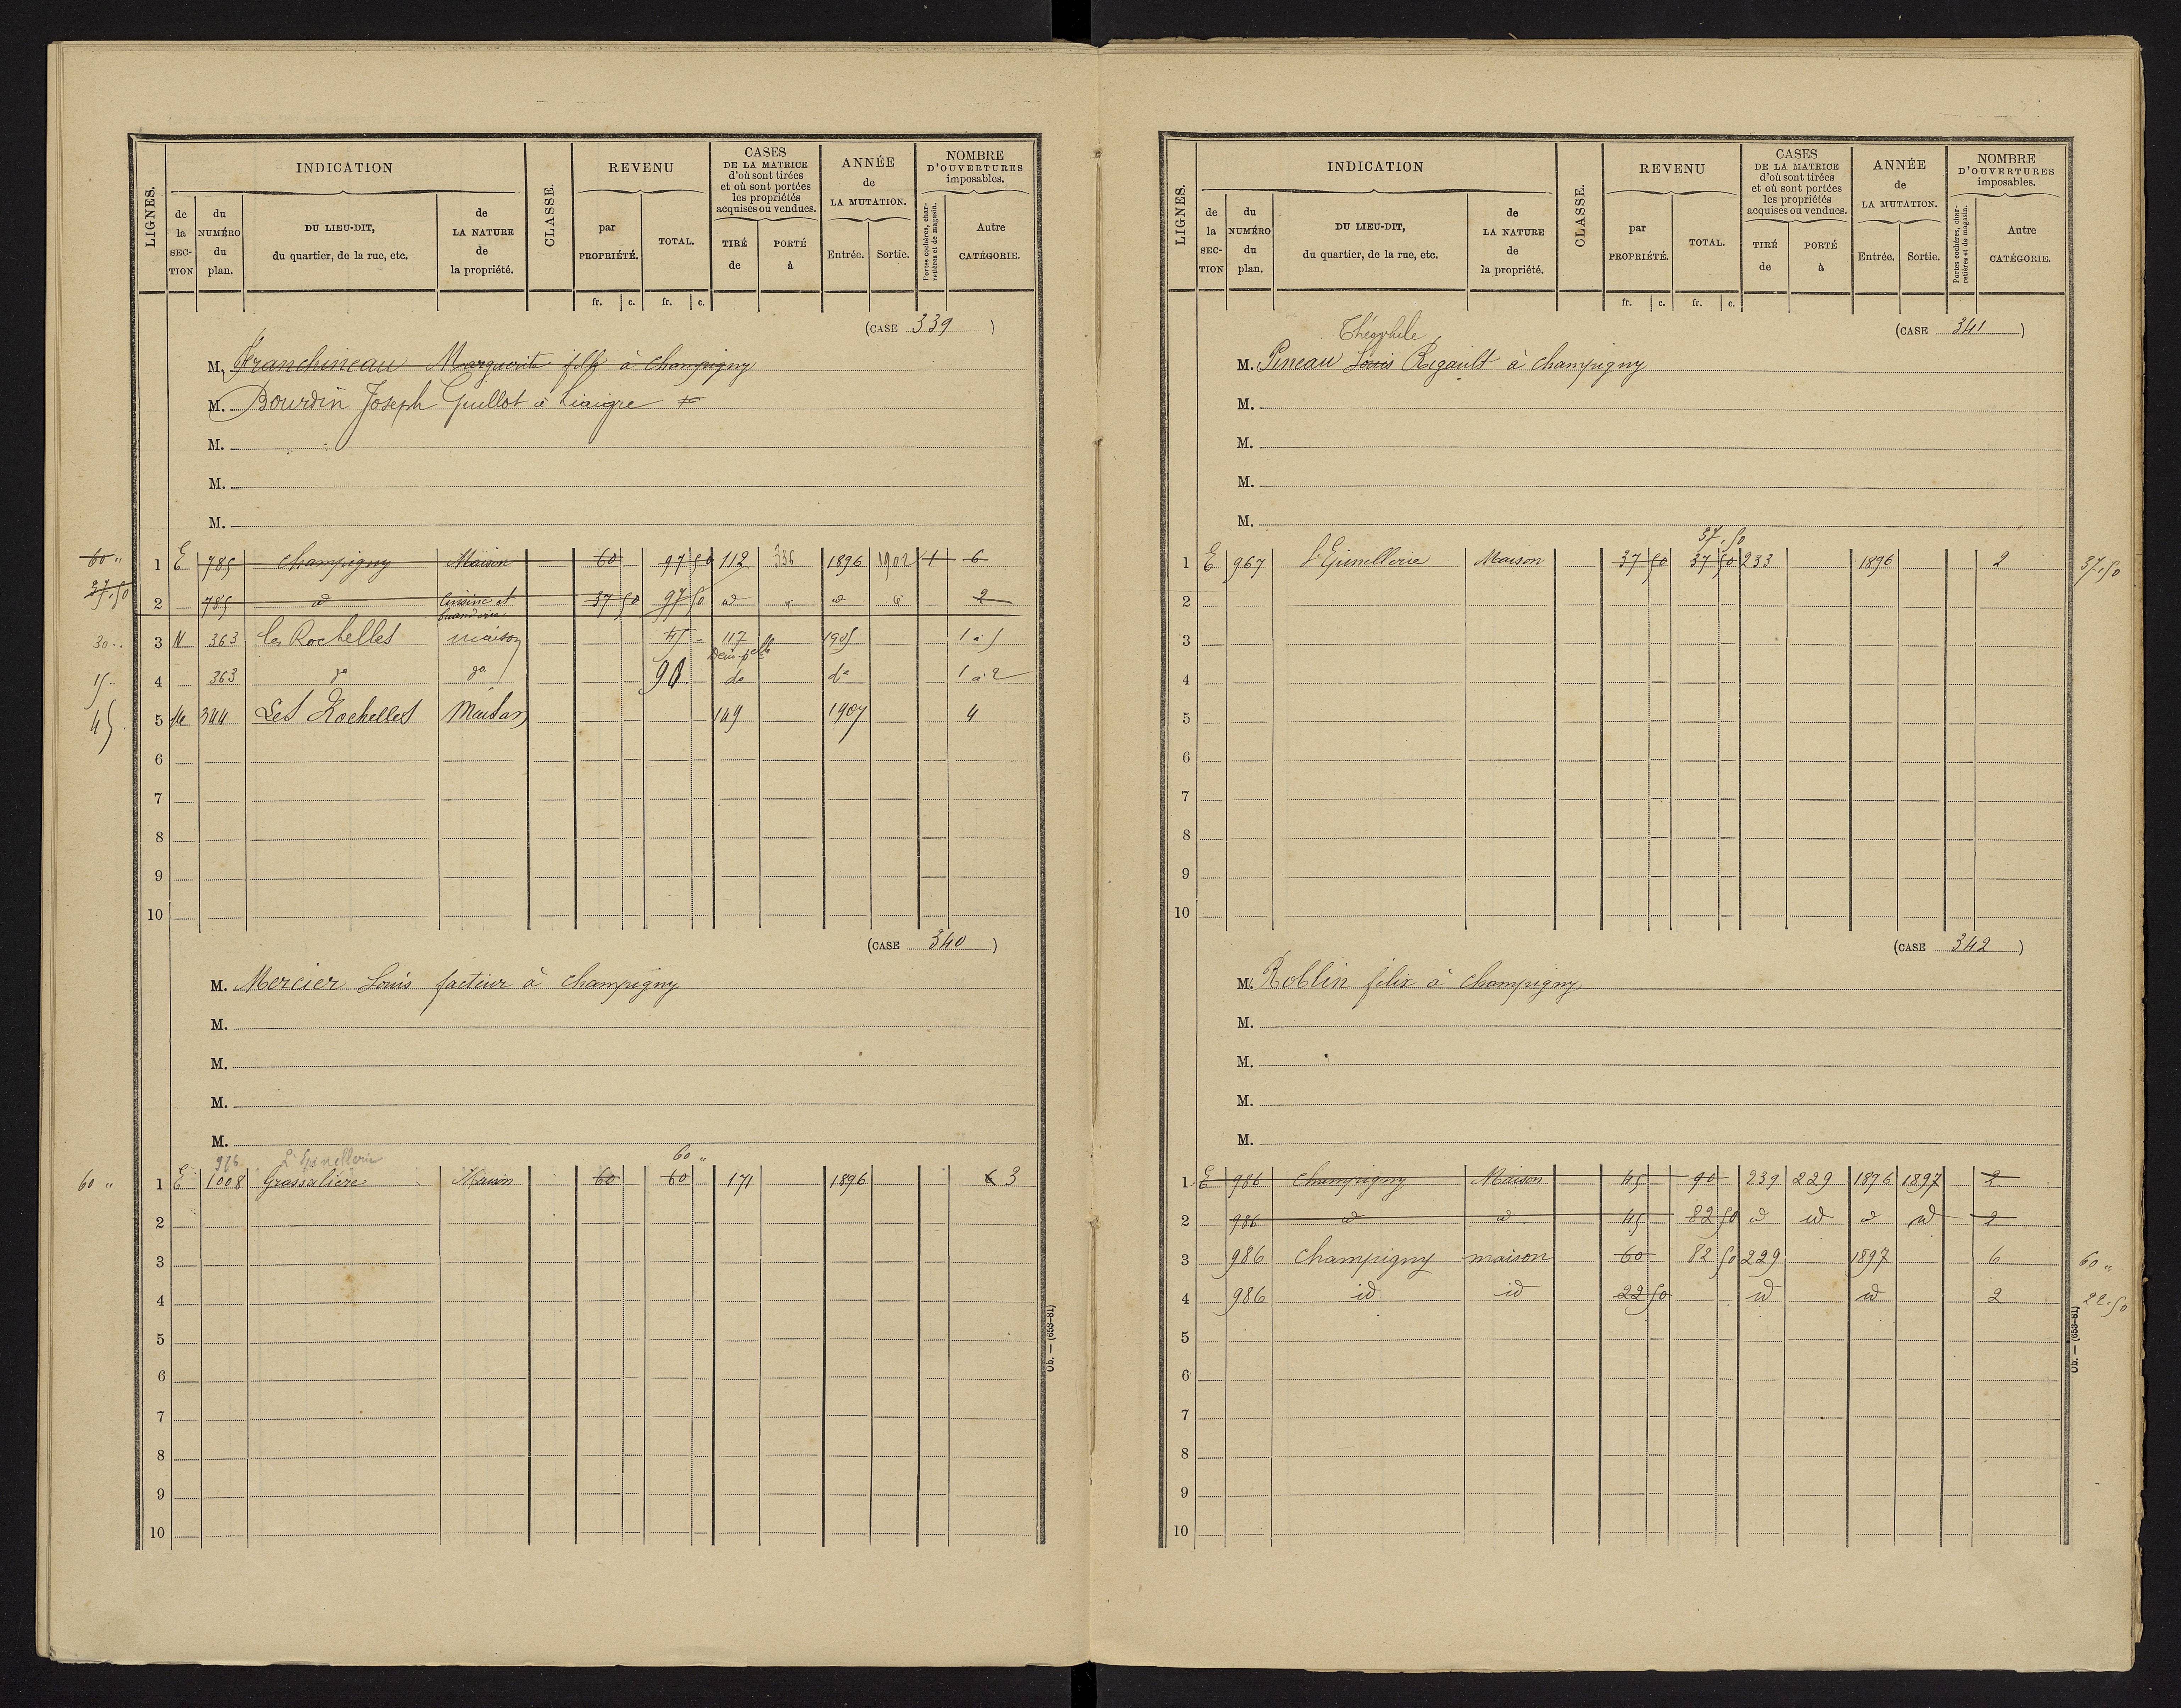 LIGNES.
INDICATION
de la SECTION
du NUMÉRO du plan.
DU LIEU-DIT, du quartier, de la rue, etc.
de LA NATURE de la propriété.
CLASSE.
REVENU
par PROPRIÉTÉ.
TOTAL.
fr. c. fr. c.
CASES DE LA MATRICE d'où sont tirées et où sont portées les propriétés acquises ou vendues.
TIRÉ de
PORTÉ à
ANNÉE de LA MUTATION.
Entrée. Sortie.
NOMBRE D'OUVERTURES imposables.
Portes cochères, charretières et de magasin.
Autre CATÉGORIE.
(CASE 339)
M. Franchineau Marguerite fille à Champigny
M. Bourdin Joseph Guillot à Liaigre
M.
M.
M.
60 " 1 E 785 Champigny Maison 60 97 50 112 336 1896 1902 1 6
37.50 2 785 id Cuisine et buanderie 37 50 97 50 id id id id 2
30 .. 3 N 363 les Rochelles maison 45 - 117 1905 1 à 5
15 .. 4 363 do do 90 do do 1 à 2
45 . 5 344 Les Rochelles Maison 149 1907 4
6
7
8
9
10
(CASE 340)
M. Mercier Louis facteur à Champigny
M.
M.
M.
M.
976 L'Epinellerie 60 "
60 " 1 E 1008 Grassalière Maison 60 60 171 1896 6 3
2
3
4
5
6
7
8
9
10
Ob. — (653-81)
LIGNES.
INDICATION
de la SECTION
du NUMÉRO du plan.
DU LIEU-DIT, du quartier, de la rue, etc.
de LA NATURE de la propriété.
CLASSE.
REVENU
par PROPRIÉTÉ.
TOTAL.
fr. c. fr. c.
CASES DE LA MATRICE d'où sont tirées et où sont portées les propriétés acquises ou vendues.
TIRÉ de
PORTÉ à
ANNÉE de LA MUTATION.
Entrée. Sortie.
NOMBRE D'OUVERTURES imposables.
Portes cochères, charretières et de magasin.
Autre CATÉGORIE.
(CASE 341)
Théophile
M. Pineau Louis Rigault à Champigny
M.
M.
M.
M.
37.50
1 E 967 L'Epinellerie Maison 37 50 37 50 233 1896 2 37.50
2
3
4
5
6
7
8
9
10
(CASE 342)
M. Roblin félix à Champigny
M.
M.
M.
M.
1 E 986 Champigny Maison 45 90 239 229 1896 1897 2
2 986 id id 45 82 50 id id id id 2
3 986 Champigny maison 60 82 50 229 1897 6 60 "
4 986 id id 22 50 id id 2 22.50
5
6
7
8
9
10
Ob. — (653-81)